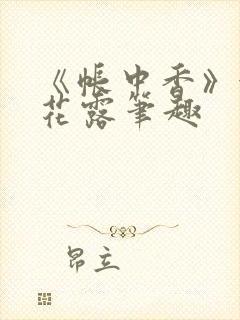 《帐中香》
花露笔趣
昂立